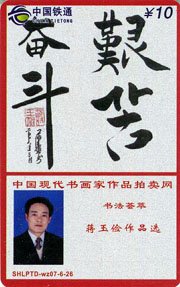 中国铁通
CHINA TIETONG
¥10
艰苦
奋斗
中国现代书画家作品拍卖网
书法荟萃
蒋玉俭作品选
SHLPTD-wz07-6-26